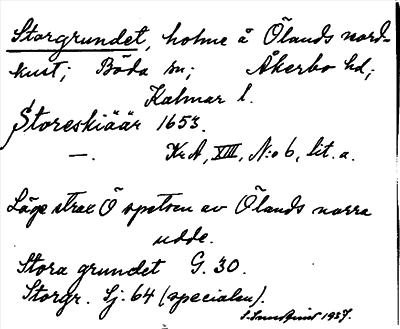 Storgrundet, holme å Ölands nord-
kust; Böda sn; Åkerbo hd;
Kalmar l.
Storeskiäär 1653.
—. KrA, XIII, N:o 6, lit. a.
Läge strax Ö spetsen av Ölands norra
udde.
Stora grundet G. 30.
Storgr. Sj. 64 (specialen).
1927.